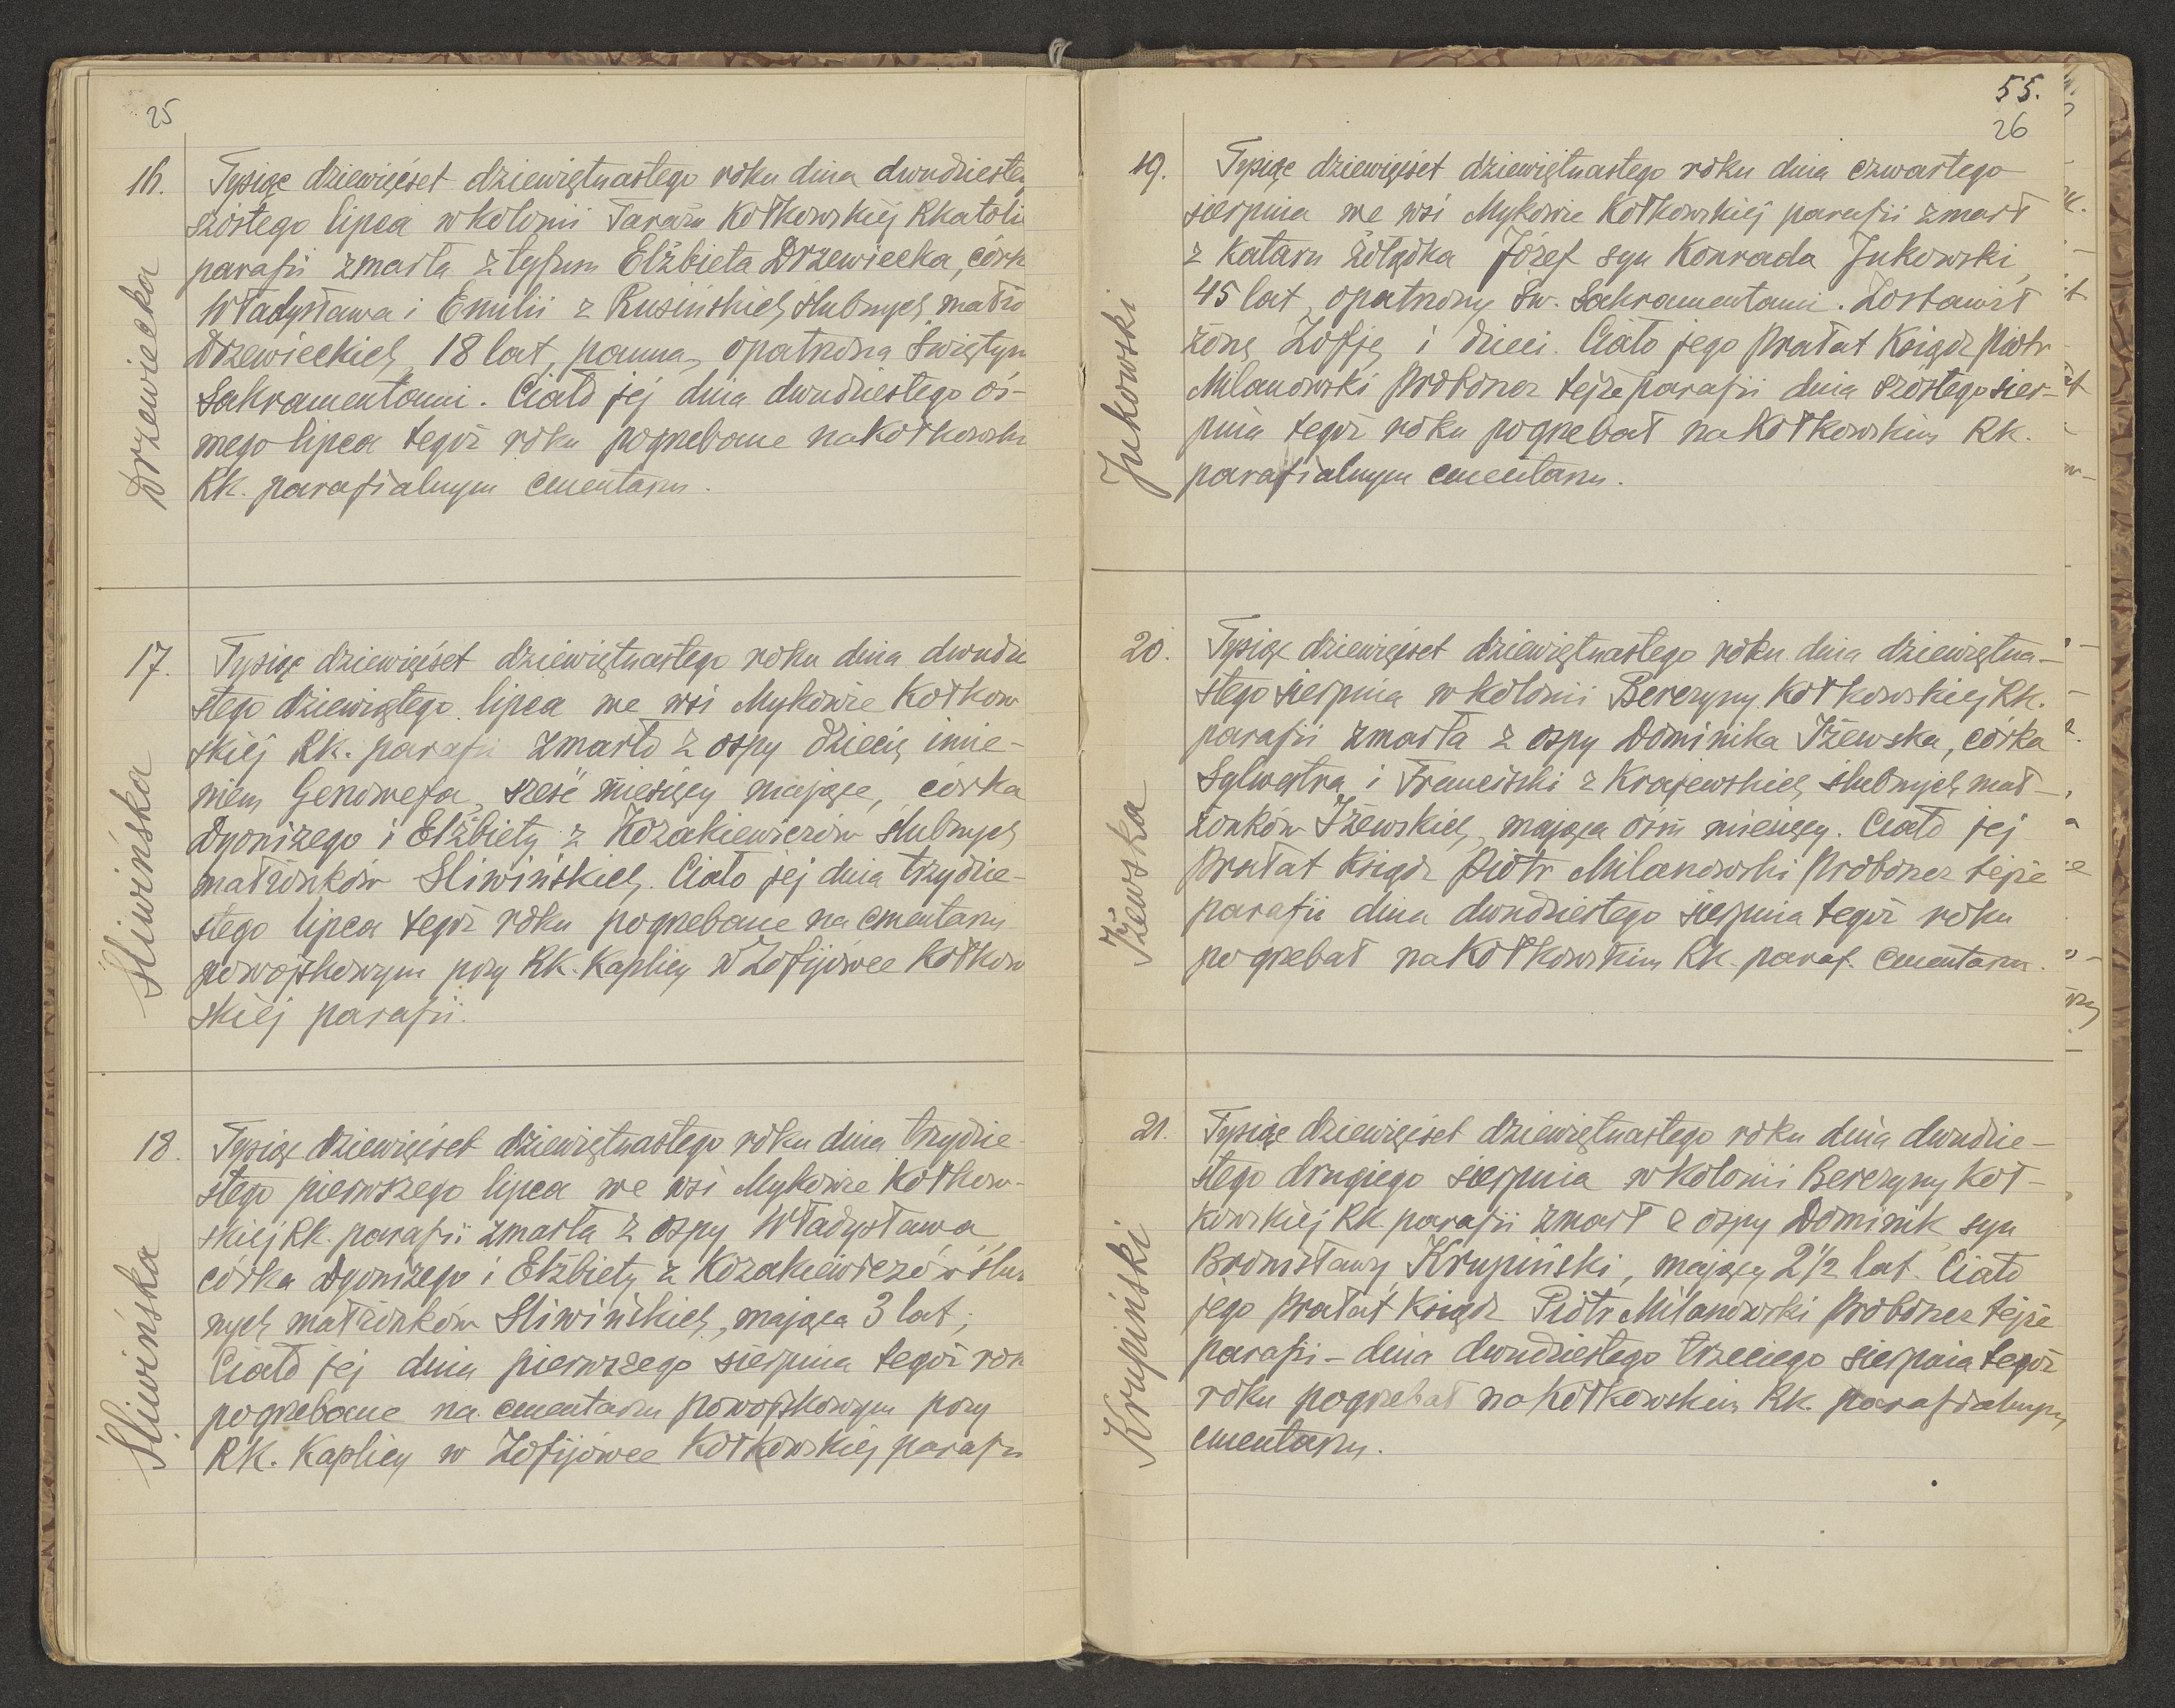 25
16.
Drzewiecka
Tysiąc dziewięćset dziewiętnastego roku dnia dwudzieste
szóstego lipca w kolonii Taraż Kołkowskiej Rkatoli
parafii zmarła z tyfusu Elżbieta Drzewiecka, córk
Władysława i Emilii z Rusińskich ślubnych małżo
Drzewieckich, 18 lat, panna, opatrzona Świętym
Sakramentami. Ciało jej dnia dwudziestego ós-
mego lipca tegoż roku pogrzebane na Kołkowski
Rk. parafialnym cmentarzu.
17.
Śliwińska
Tysiąc dziewięćset dziewiętnastego roku dnia dwudzie
stego dziewiątego lipca we wsi Mykowie Kołkow
skiej Rk. parafii zmarło z ospy dziecię imie-
niem Genowefa, sześć miesięcy mające, córka
Dyonizego i Elżbiety z Kozakiewiczów ślubnych
małżonków Śliwińskich. Ciało jej dnia trzydzie-
stego lipca tegoż roku pogrzebane na cmentarzu
powojskowym przy Rk. Kaplicy w Zofijówce Kołkow
skiej parafii.
18.
Śliwińska
Tysiąc dziewięćset dziewiętnastego roku dnia trzydzie-
stego pierwszego lipca we wsi Mykowie Kołkow-
skiej Rk. parafii zmarła z ospy Władysława,
córka Dyonizego i Elżbiety z Kozakiewiczów ślub
nych małżonków Śliwińskich, mająca 3 lat;
Ciało jej dnia pierwszego sierpnia tegoż rok
pogrzebane na cmentarzu powojskowym przy
RK. Kaplicy w Zofijówce Kołkowskiej parafii
55.
26
19.
Jukowski
Tysiąc dziewięćset dziewiętnastego roku dnia czwartego
sierpnia we wsi Mykowie Kołkowskiej parafii zmarł
z kataru żołądka Józef syn Konrada Jukowski,
45 lat, opatrzony Św. Sakramentami. Zostawił
żonę Zofję i dzieci. Ciało jego Prałat Ksiądz Piotr
Milanowski Proboszcz tejże parafii dnia szóstego sier-
pnia tegoż roku pogrzebał na Kołkowskim Rk.
parafialnym cmentarzu.
20.
Iżewska
Tysiąc dziewięćset dziewiętnastego roku dnia dziewiętna-
stego sierpnia w kolonii Berezyny Kołkowskiej Rk.
parafii zmarła z ospy Dominika Iżewska, córka
Sylwestra i Franciszki z Krajewskich ślubnych mał-
żonków Iżewskich, mająca ośm miesięcy. Ciało jej
Prałat Ksiądz Piotr Milanowski Proboszcz tejże
parafii dnia dwudziestego sierpnia tegoż roku
pogrzebał na Kołkowskim Rk. paraf. cmentarzu.
21.
Krupiński
Tysiąc dziewięćset dziewiętnastego roku dnia dwudzie-
stego drugiego sierpnia w kolonii Berezyny Koł-
kowskiej Rk. parafii zmarł z ospy Dominik, syn
Bronisławy Krupiński, mający 2 1/2 lat. Ciało
jego Prałat Ksiądz Piotr Milanowski Proboszcz tejże
parafii - dnia dwudziestego trzeciego sierpnia tegoż
roku pogrzebał na Kołkowskim Rk. parafialnym
cmentarzu.